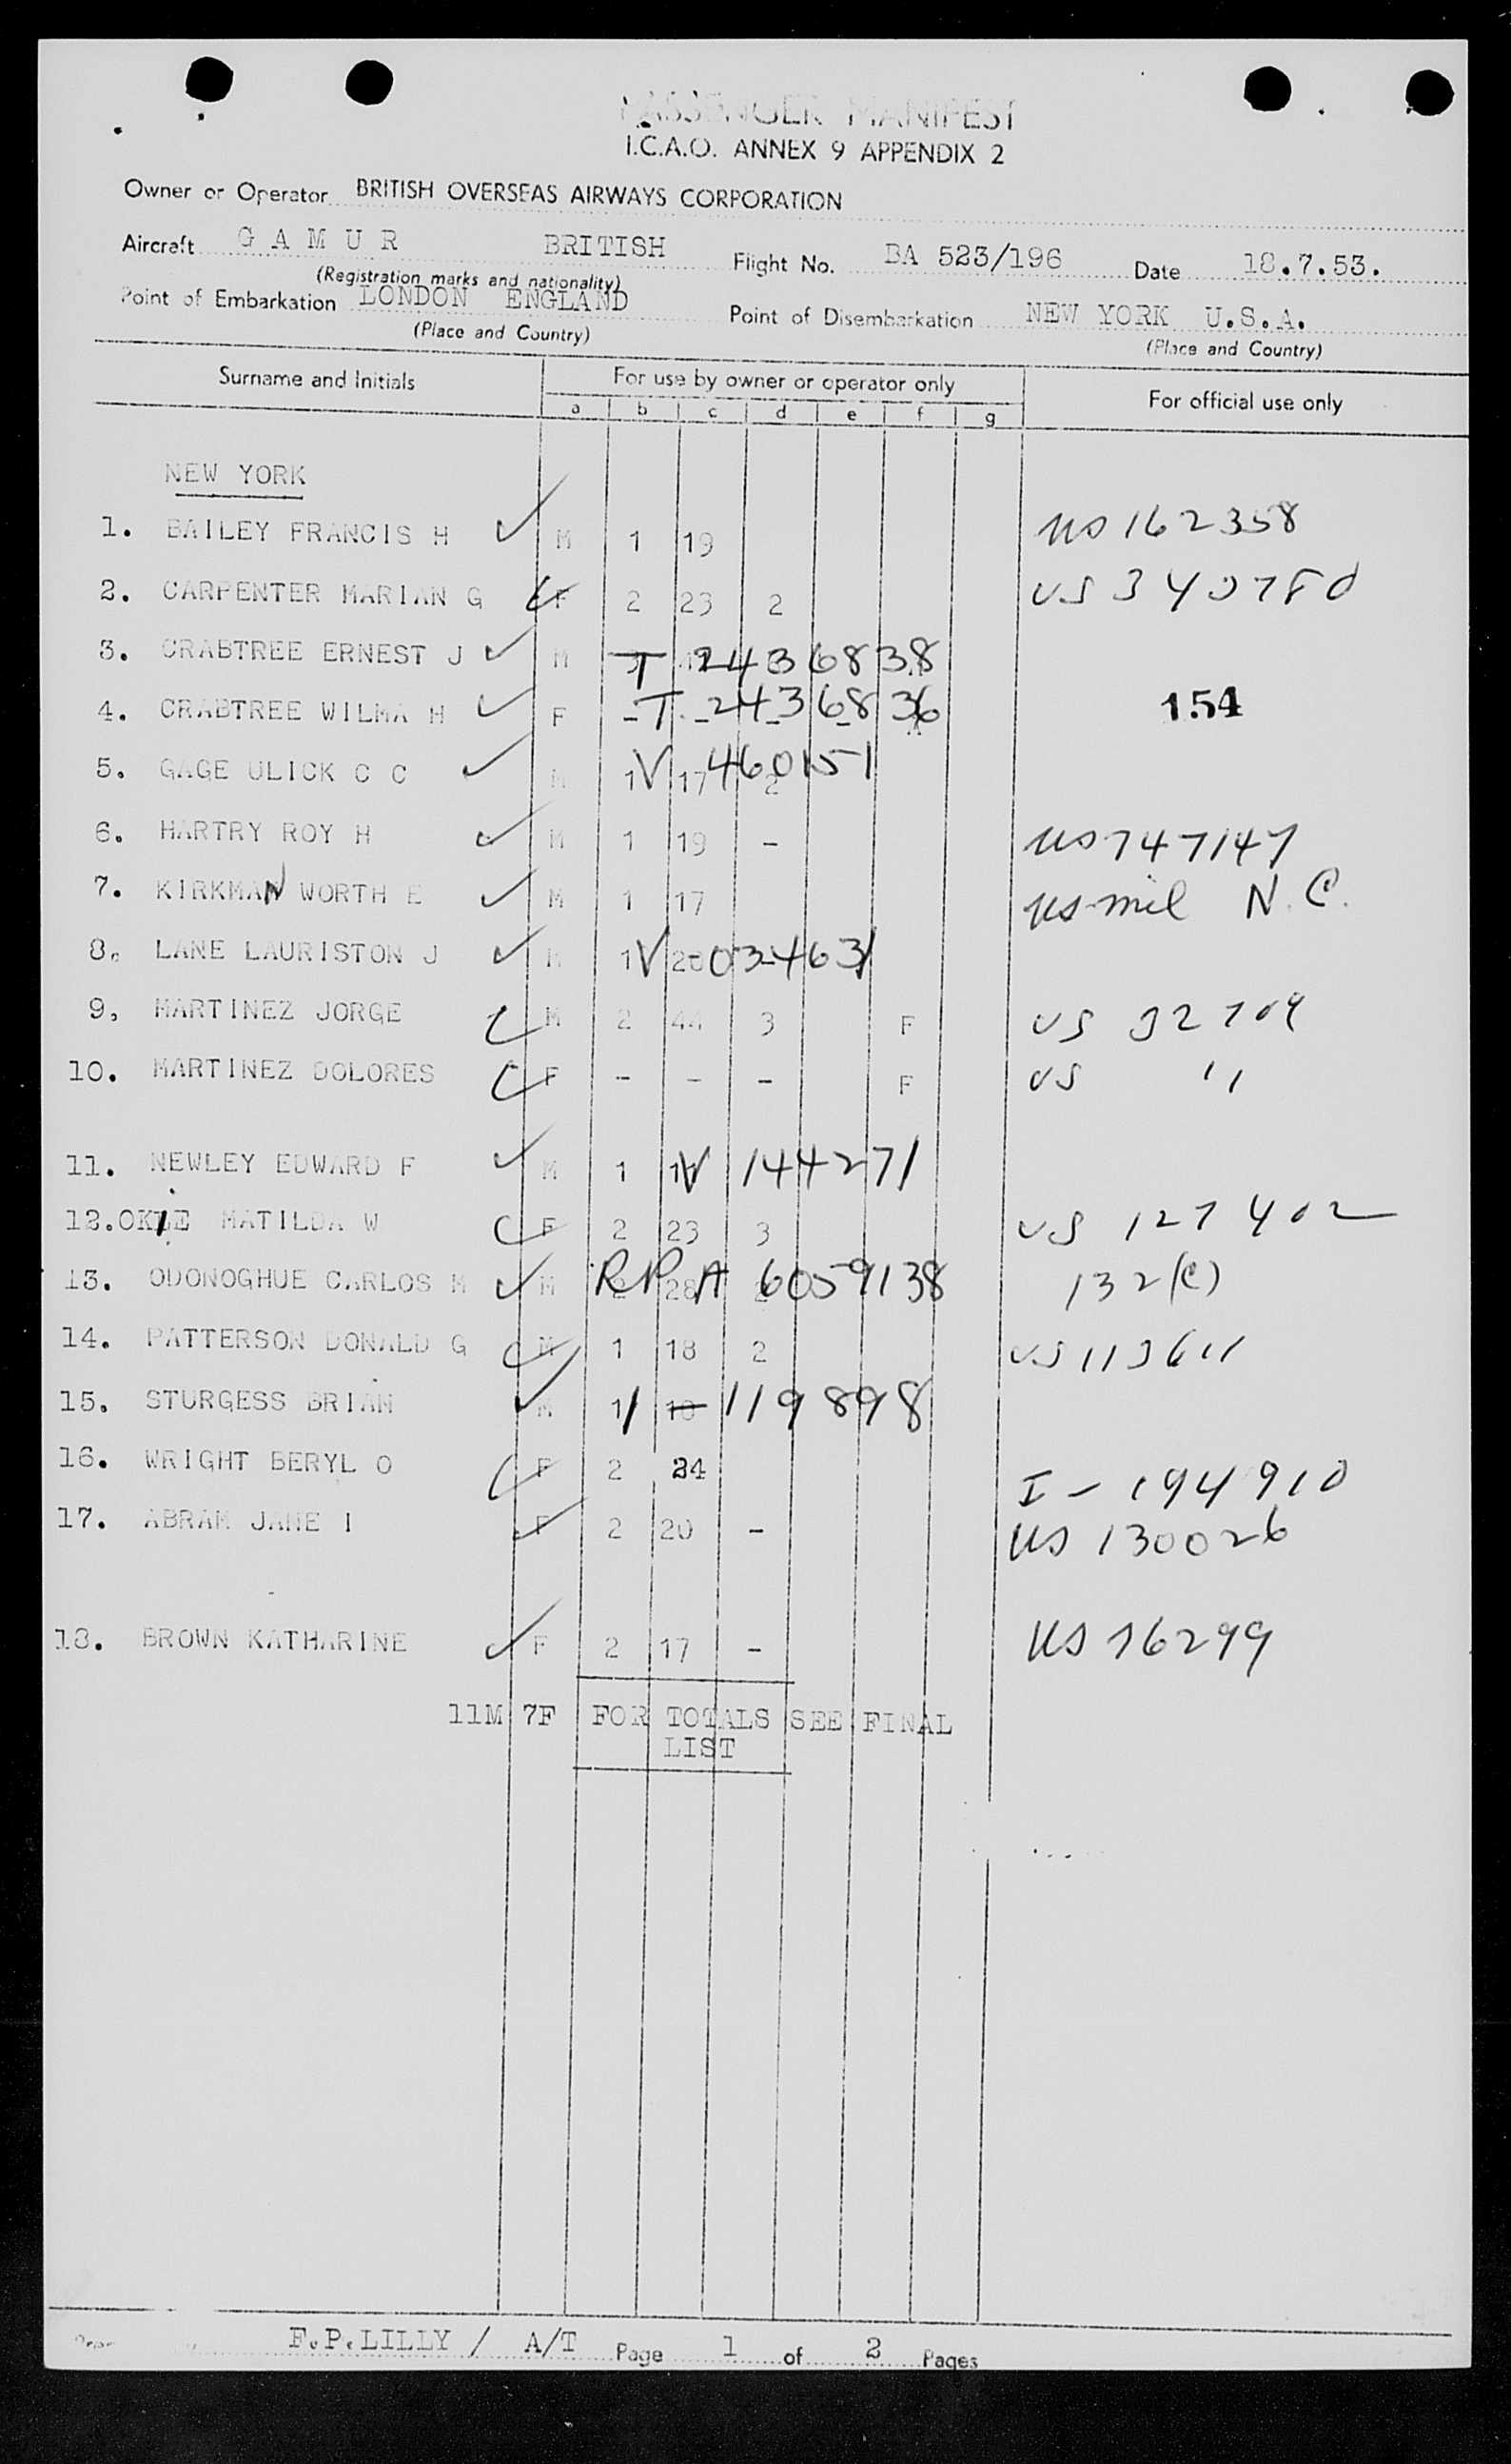 PASSENGER MANIFEST
I.C.A.O. ANNEX 9 APPENDIX 2
Owner or Operator BRITISH OVERSEAS AIRWAYS CORPORATION
Aircraft G A M U R BRITISH Flight No. BA 523/196 Date 18.7.53.
(Registration marks and nationality)
Point of Embarkation LONDON ENGLAND Point of Disembarkation NEW YORK U.S.A.
(Place and Country) (Place and Country)
Surname and Initials For use by owner or operator only For official use only
a b c d e f g
NEW YORK
1. BAILEY FRANCIS H M 1 19 US 162358
2. CARPENTER MARIAN G F 2 23 2 US
3. CRABTREE ERNEST J M T 2436838
4. CRABTREE WILMA H F - T - 2436836 154
5. GAGE ULICK C C M 1 V 17 460151 2
6. HARTRY ROY H M 1 19 - US 747147
7. KIRKMAN WORTH E M 1 17 US mil N.C.
8. LANE LAURISTON J M 1 V 034631
9. MARTINEZ JORGE M 2 44 3 F US
10. MARTINEZ DOLORES F - - - F US "
11. NEWLEY EDWARD F M 1 V 144271
12. OKIE MATILDA W F 2 23 3 US 127402
13. ODONOGHUE CARLOS M M 28 RP A 6059138 132(C)
14. PATTERSON DONALD G M 1 18 2 US 113611
15. STURGESS BRIAN M 1 119898
16. WRIGHT BERYL O F 2 24 I - 194910
17. ABRAM JANE I F 2 20 - US 130026
18. BROWN KATHARINE F 2 17 - US 76299
11M 7F FOR TOTALS SEE FINAL
LIST
F.P.LILLY / A/T Page 1 of 2 Pages